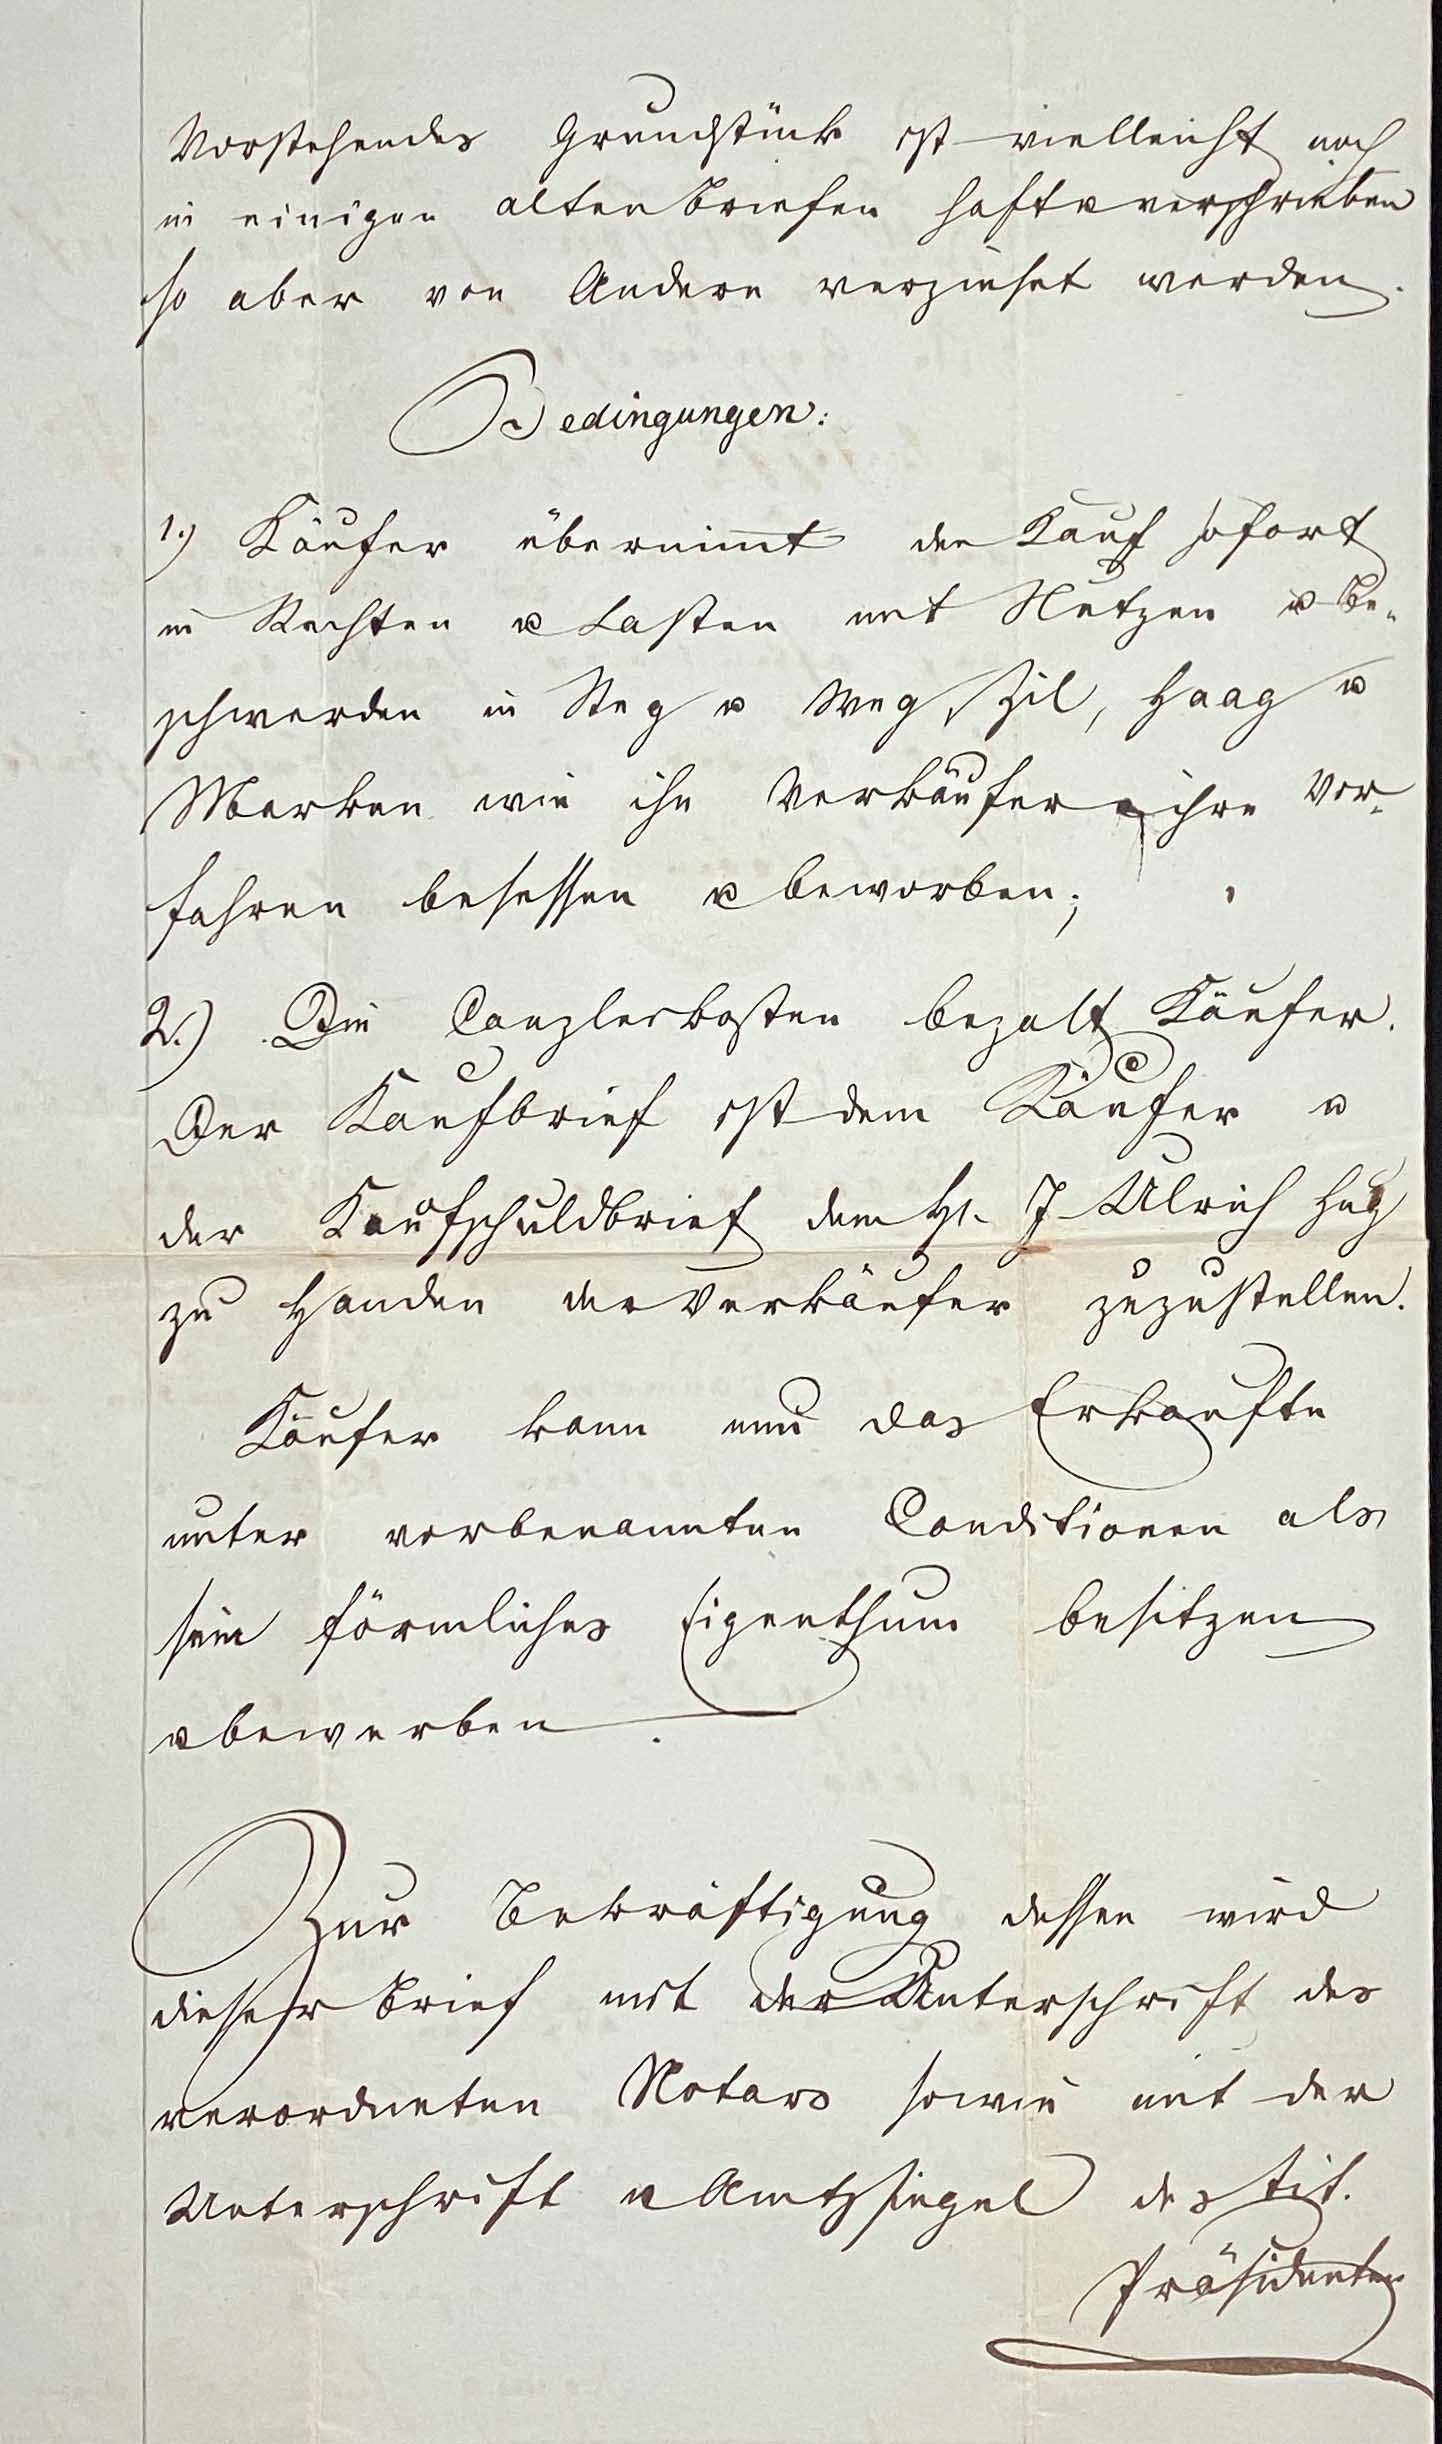 Vorstehendes Grundstück ist vielleicht noch
in einigen alten Briefen haft u verschrieben
so aber von Andern verzinset werden.
Bedingungen:
1.) Käufer übernimmt den Kauf sofort
in Rechten u Lasten mit Nutzen u Be-
schwerden in Steg u Weg, Zil, Haag u
Marken wie ihn Verkäufer u ihre Vor-
fahren besessen u beworben;
2.) Die Canzleikosten bezalt Käufer.
Der Kaufbrief ist dem Käufer u
der Kaufschuldbrief dem H. J. Ulrich Hug
zu Handen der Verkäufer zuzustellen.
Käufer kann nun das Erkaufte
unter vorbenannten Conditionen als
sein förmliches Eigenthum besitzen
u bewerben.
Zur Bekräftigung dessen wird
dieser Brief mit der Unterschrift des
verordneten Notars sowie mit der
Unterschrift u Amtssiegel des Tit.
Präsidenten